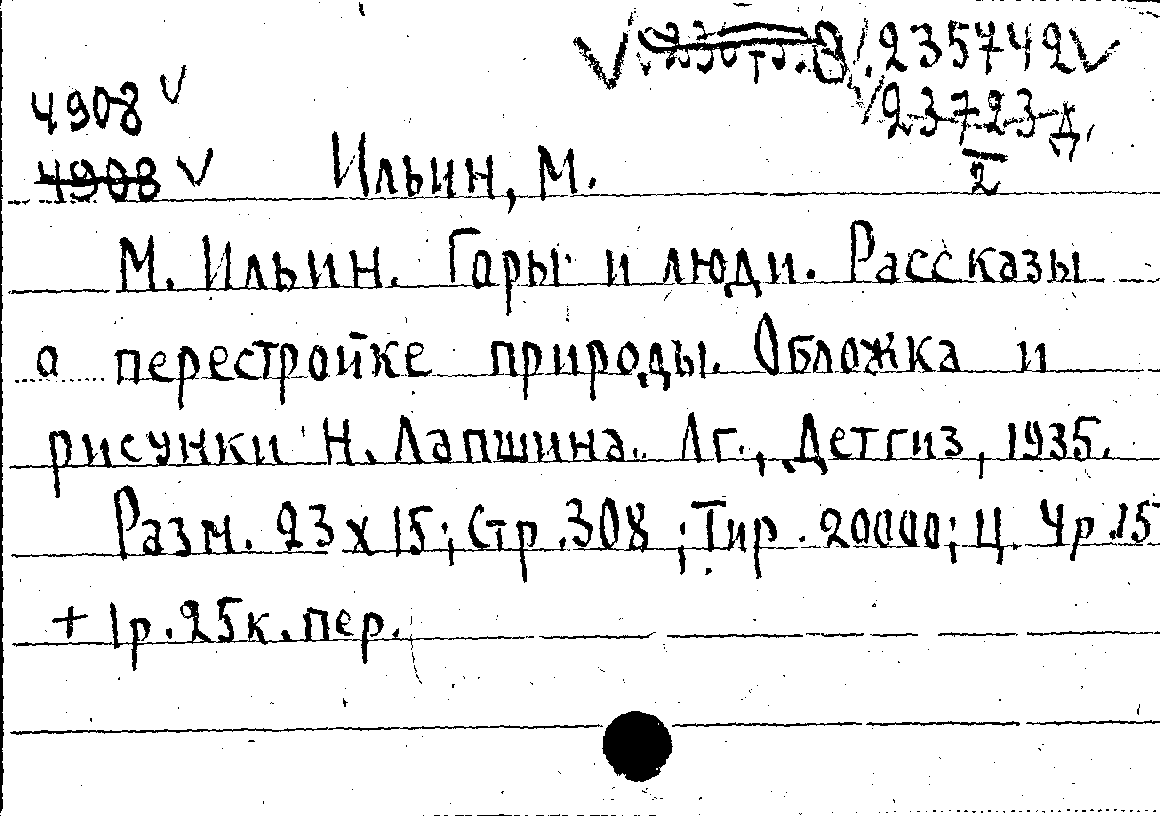 235742
4908
23723 д.
4908
2
Ильин, М.
М. Ильин. Горы и люди. Рассказы
о перестройке природы. Обложка и
рисунки Н. Лапшина. Лг., Детгиз, 1935.
Разм. 23 х 15; Стр. 308; Тир. 20000; Ц. 4р.15
+ 1р.25к.пер.